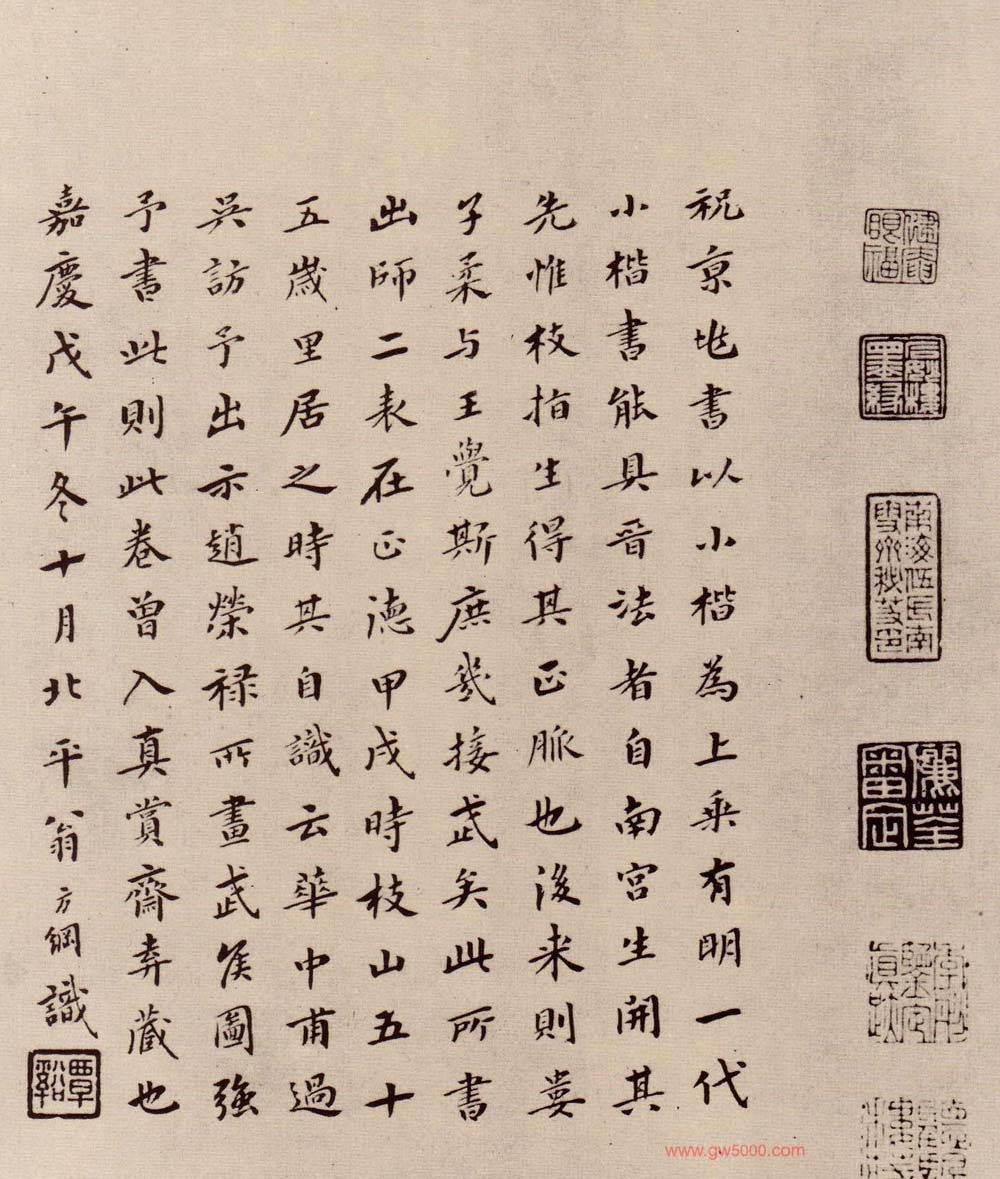 南海伍氏南雪齋秘笈印
儷荃審定
祝京兆書以小楷為上乘有明一代
小楷書能具晉法者自南宮生開其
先惟枝指生得其正脈也後来則婁
子柔与王覺斯庶幾接武矣此所書
出師二表在正德甲戌時枝山五十
五歲里居之時其自識云華中甫過
吳訪予出示趙榮祿所畫武侯圖強
予書此則此卷曾入真賞齋弆藏也
嘉慶戊午冬十月北平翁方綱識
覃谿
www.gw5000.com